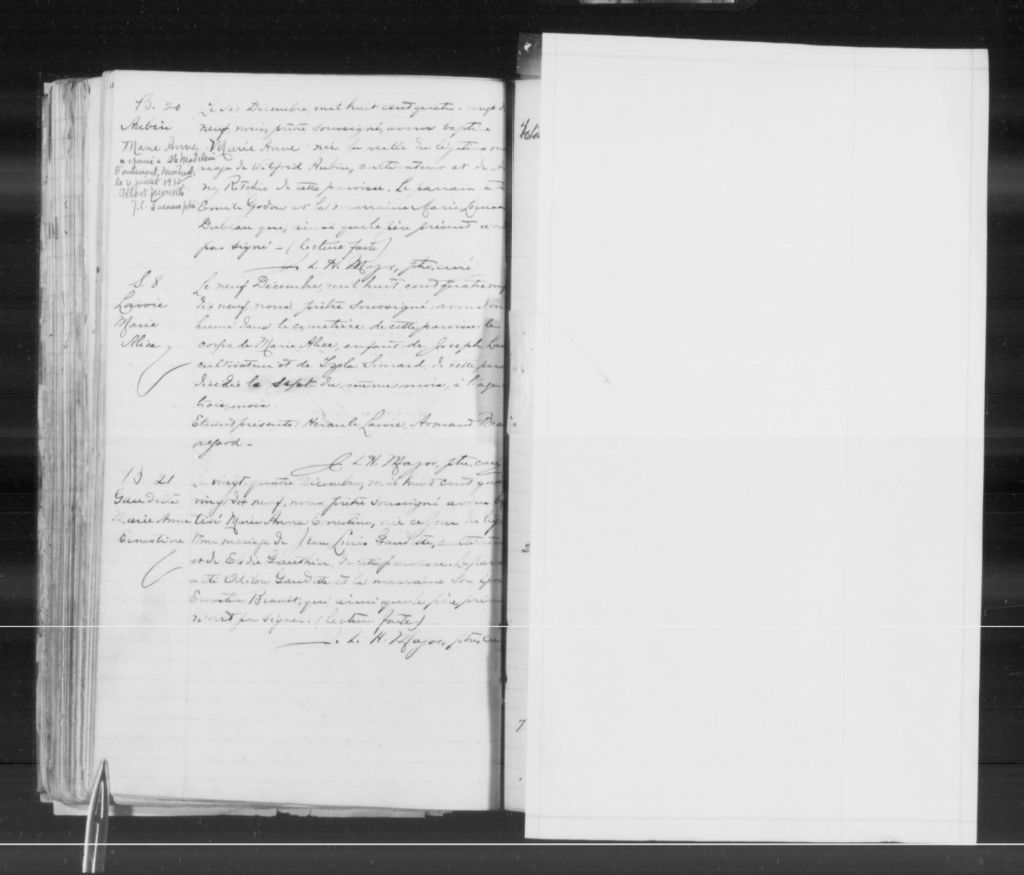 B. 20
Aubin
Marie Anne,
a épousé à Ste Madeleine
d'Outremont, Montréal,
le 4 juillet 1932
Albert Monette
Le ier Décembre mil huit cent quatre-vingt d
neuf nous, prêtre soussigné, avons bapti
Marie Anne née la veille du légitime ma
riage de Wilfrid Aubin, cultivateur et de A
ny Ritchie de cette paroisse. Le parrain a é
Emile Godon et la marraine Marie Louise
Dubeau qui, ainsi que le père présent n'on
pas signé - (lecture faite)
L. H. Major, ptre, curé
S. 8
Lavoie
Marie
Alice,
Le neuf Décembre, mil huit cent quatre ving
dix neuf nous prêtre soussigné avons in
humé dans le cimetière de cette paroisse le
corps de Marie Alice, enfant de Joseph Lav
cultivateur et de Simard, de cette paro
décédée le sept du même mois, à l'age
trois mois.
Etaient présents: Lavoie, Armand Beau
regard -
L. H. Major, ptre, curé
B 21
Gaudette
Marie Anne
Ernestine
Le vingt-quatre Décembre, mil huit cent qua
vingt dix neuf, nous, prêtre soussigné avons bap
tisé Marie Anna Ernestine, née ce jour du légi
time mariage de Jean Louis Gaudette, cultivateur
et de Elodie Gauthier, de cette paroisse. Le par
a été Odilon Gaudette et la marraine son épou
Ernestine Brault, qui ainsi que le père prés
n'ont pu signer. (lecture faite)
L. H. Major, ptre, cu
2
7